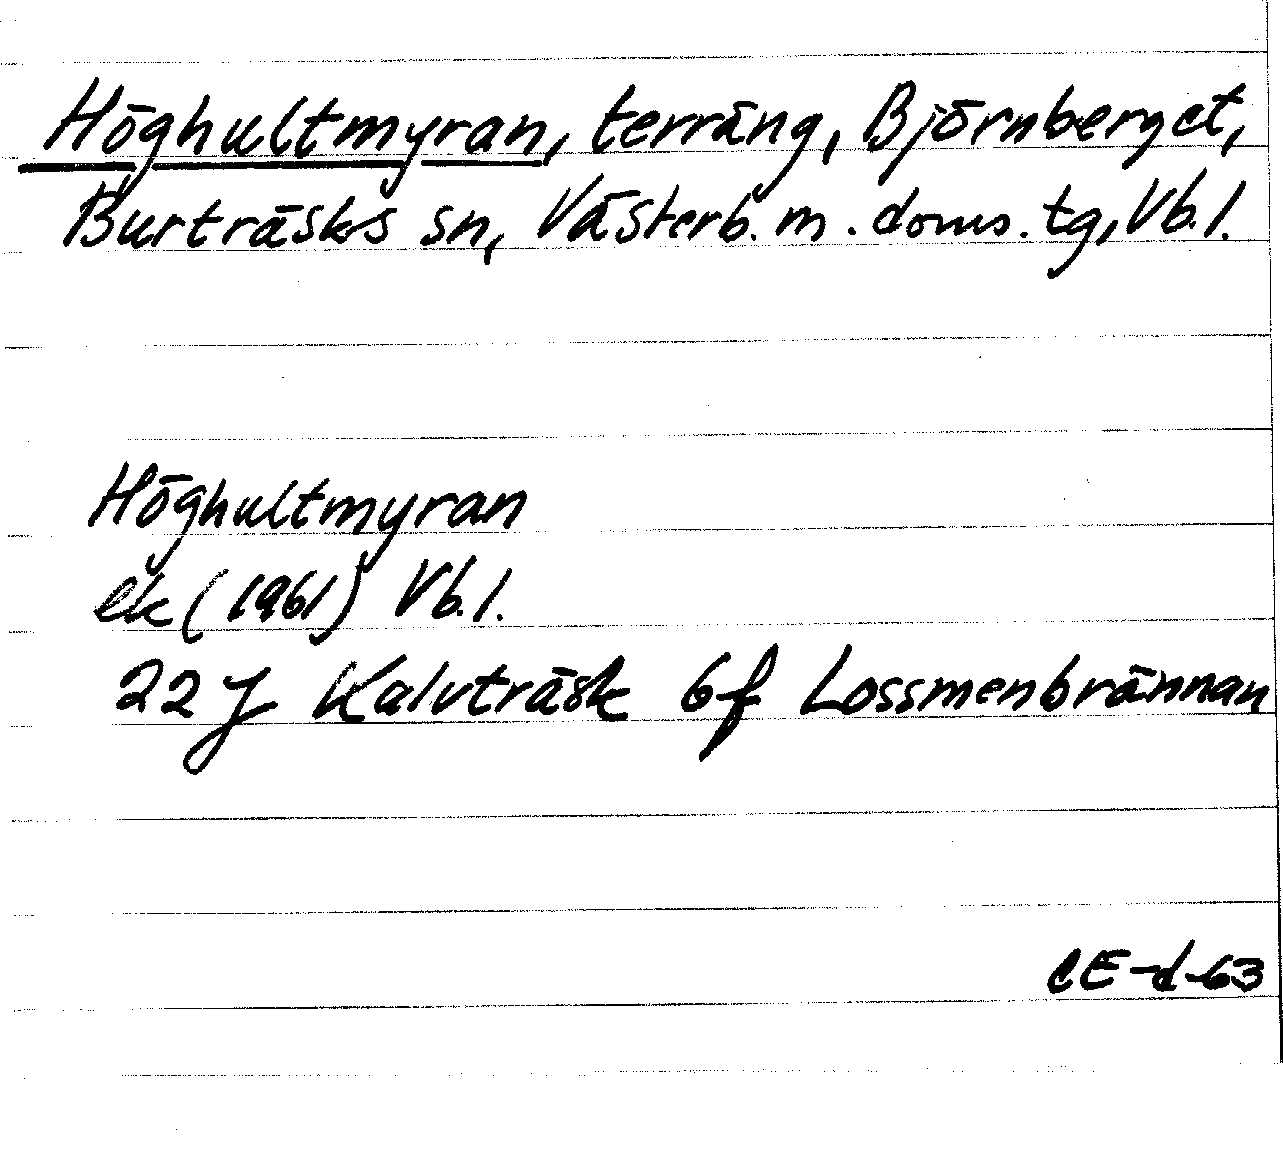 Höghultmyran, terräng, Björnberget,
Burträsks sn, Västerb. m. doms. tg, Vb. l.
Höghultmyran
ek (1961) Vb. l.
22 J Kalvträsk 6f Lossmenbrännan
CE-d-63